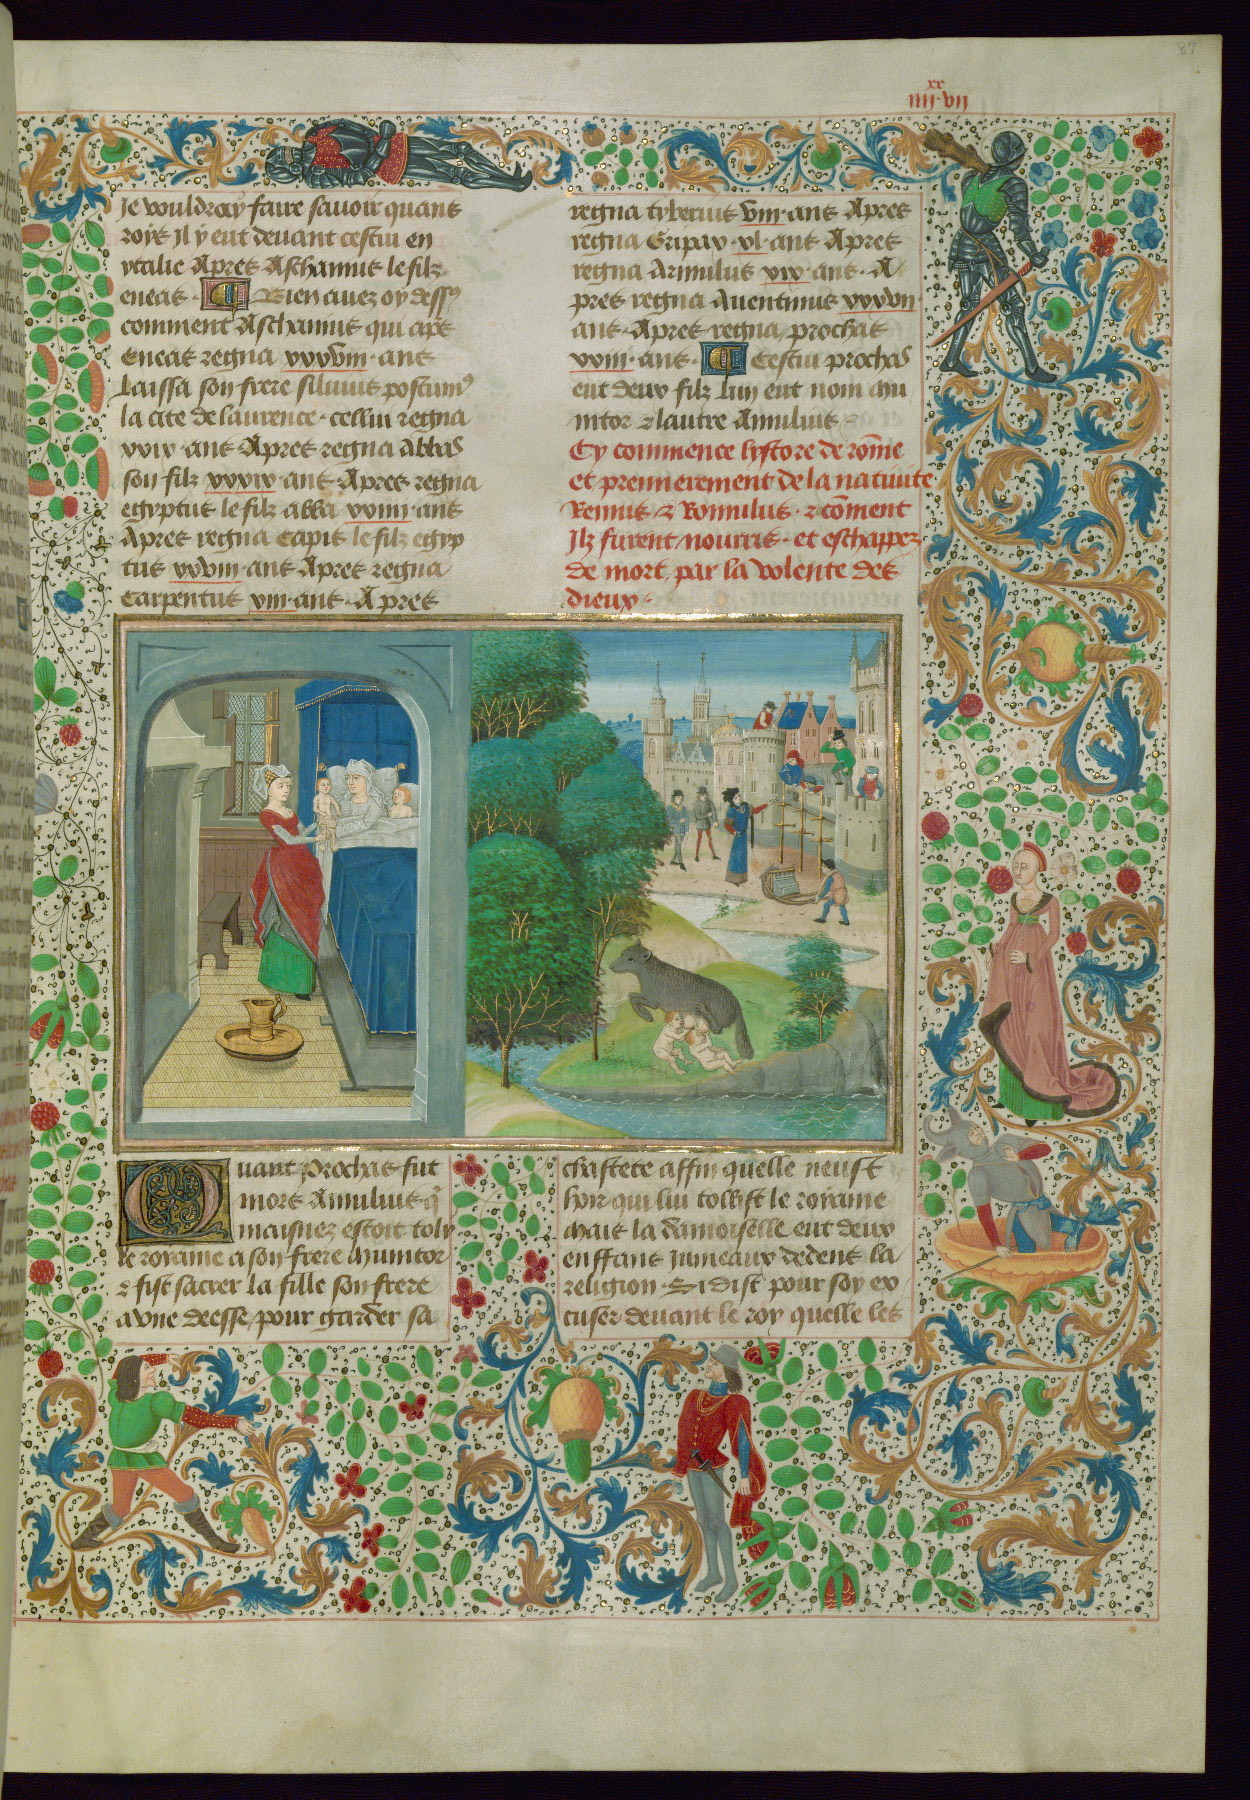 87
xx
iiii·vii
Je vouldroy faire savoir quans
roys Jl y eut devant cestui en
ytalie Apres Aschanius le filz
eneas · Bien avez oy dess9
comment Aschanius qui apres
eneas regna xxxviii· ans
Laissa son frere silvius postum9
la cite de laurence · cellui regna
xxix · ans Apres regna Abbas
son filz xxxix · ans · Apres regna
egyptus le filz abba xxiiii· ans
Apres regna Capis le filz egyp
tus xxviii· ans Apres regna
Carpentus xiii · ans · Apres
regna tyberius viii· ans Apres
regna Gripax · xl · ans Apres
regna Armilus xix · ans · A
pres regna Aventinus xxxvii·
ans · Apres regna prochas
xxiii· ans · Cestui prochas
eut deux filz lun eut nom mu
mtor & lautre Amulius
Cy commence lystore de rōme
et premierement de la nativite
Remus & Romulus · & cōment
Jlz furent nourris · et eschappez
de mort par la volente des
dieux ·
Quant Prochas fut
mors Amulius q̄
maisnez estoit toly
le royaume a son frere Munitor
& fist sacrer la fille son frere
a une deesse pour garder sa
chastete affin quelle neust
hoir qui lui tollist le royaume
Mais la damoiselle eut deux
enffans Jumeaux dedens la
religion · Si dist pour soy ex
cuser devant le roy quelle les